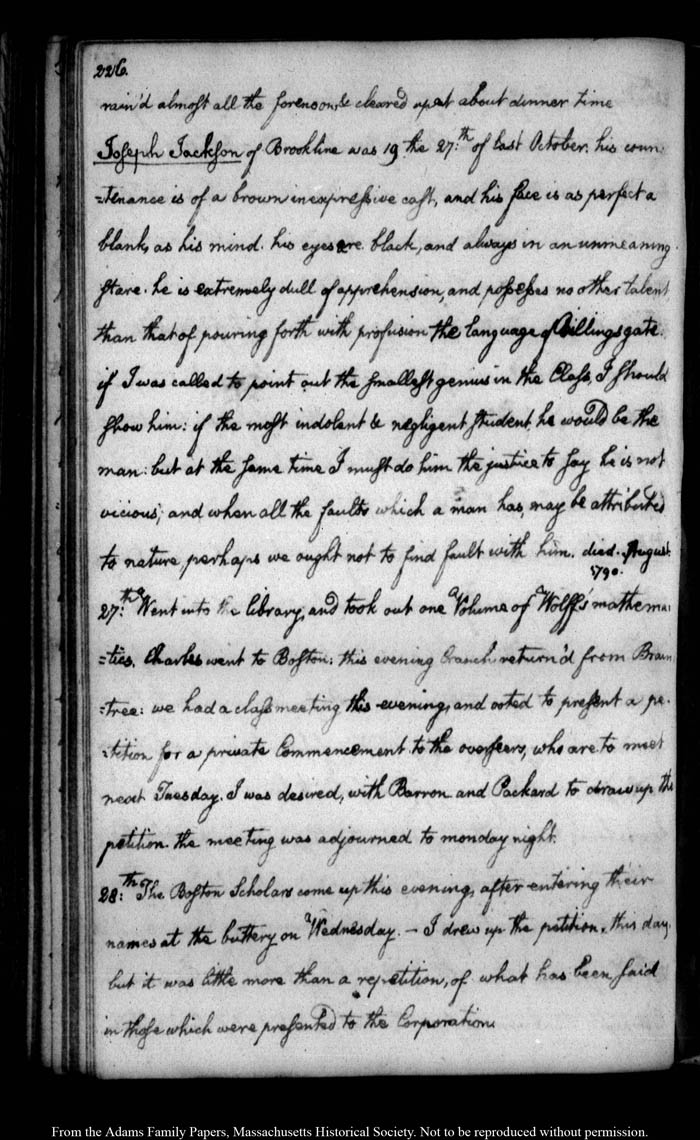 226.
rain'd almost all the forenoon, & cleared up at about dinner time
Joseph Jackson of Brookline was 19 the 27:th of last October. his coun-
=tenance is of a brown inexpressive cast, and his face is as perfect a
blank, as his mind. his eyes are black, and always in an unmeaning
stare. he is extremely dull of apprehension, and possesses no other talent
than that of pouring forth with profusion the language of Billingsgate.
if I was called to point out the smallest genius in the Class, I should
show him: if the most indolent & negligent student, he would be the
man: but at the same time I must do him the justice to say he is not
vicious; and when all the faults which a man has, may be attributed
to nature, perhaps we ought not to find fault with him. died. August.
1790.
27:th Went into the library, and took out one Volume of Wolff's mathema-
=tics. Charles went to Boston: this evening Cranch return'd from Brain
=tree: we had a class meeting this evening, and voted to present a pe-
=tition for a private Commencement to the overseers, who are to meet
next Tuesday. I was desired, with Barron and Packard to draw up the
petition. the meeting was adjourned to monday night.
28:th The Boston Scholars come up this evening, after entering their
names at the buttery on Wednesday. — I drew up the petition, this day,
but it was little more than a repetition, of what has been said
in those which were presented to the Corporation.
From the Adams Family Papers, Massachusetts Historical Society. Not to be reproduced without permission.